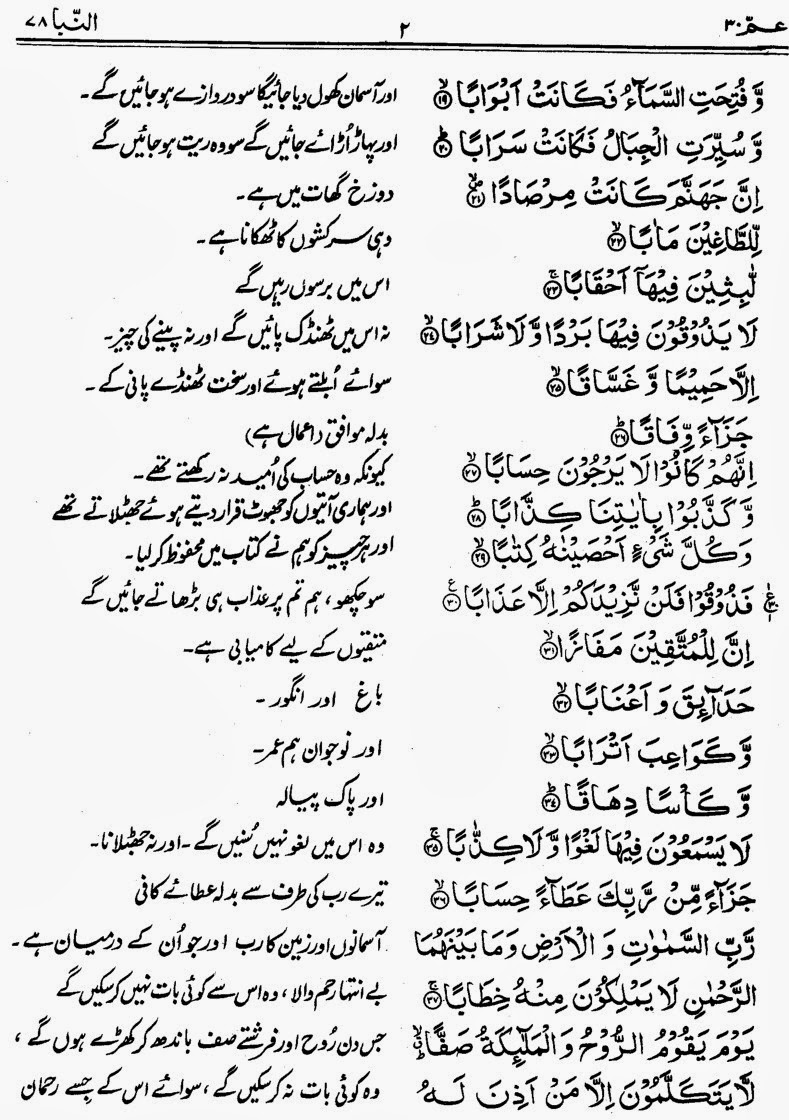 عمّ ٣٠ ٢ النّبا ٧٨
وَّ فُتِحَتِ السَّمَآءُ فَكَانَتْ اَبْوَابًا ۙ﴿۱۹﴾ اور آسمان کھول دیا جائیگا سو دروازے ہو جائیں گے۔
وَّ سُيِّرَتِ الْجِبَالُ فَكَانَتْ سَرَابًا ؕ﴿۲۰﴾ اور پہاڑ اُڑائے جائیں گے سو وہ ریت ہو جائیں گے
اِنَّ جَهَنَّمَ كَانَتْ مِرْصَادًا ۪ۙ﴿۲۱﴾ دوزخ گھات میں ہے۔
لِّلطَّاغِيْنَ مَاٰبًا ۙ﴿۲۲﴾ وہی سرکشوں کا ٹھکانا ہے۔
لّٰبِثِيْنَ فِيْهَاۤ اَحْقَابًا ۚ﴿۲۳﴾ اس میں برسوں رہیں گے
لَا يَذُوْقُوْنَ فِيْهَا بَرْدًا وَّ لَا شَرَابًا ۙ﴿۲۴﴾ نہ اس میں ٹھنڈک پائیں گے اور نہ پینے کی چیز۔
اِلَّا حَمِيْمًا وَّ غَسَّاقًا ۙ﴿۲۵﴾ سوائے اُبلتے ہوئے اور سخت ٹھنڈے پانی کے۔
جَزَآءً وِّفَاقًا ؕ﴿۲۶﴾ بدلہ موافق (اعمال ہے)
اِنَّهُمْ كَانُوْا لَا يَرْجُوْنَ حِسَابًا ۙ﴿۲۷﴾ کیونکہ وہ حساب کی اُمید نہ رکھتے تھے۔
وَّ كَذَّبُوْا بِاٰيٰتِنَا كِذَّابًا ؕ﴿۲۸﴾ اور ہماری آیتوں کو جھوٹ قرار دیتے ہوئے جھٹلاتے تھے
وَ كُلَّ شَيْءٍ اَحْصَيْنٰهُ كِتٰبًا ۙ﴿۲۹﴾ اور ہر چیز کو ہم نے کتاب میں محفوظ کر لیا۔
فَذُوْقُوْا فَلَنْ نَّزِيْدَكُمْ اِلَّا عَذَابًا ﴿۳۰﴾ سو چکھو، ہم تم پر عذاب ہی بڑھاتے جائیں گے
اِنَّ لِلْمُتَّقِيْنَ مَفَازًا ۙ﴿۳۱﴾ متقیوں کے لیے کامیابی ہے۔
حَدَآئِقَ وَ اَعْنَابًا ۙ﴿۳۲﴾ باغ اور انگور۔
وَّ كَوَاعِبَ اَتْرَابًا ۙ﴿۳۳﴾ اور نوجوان ہم عمر۔
وَّ كَاْسًا دِهَاقًا ؕ﴿۳۴﴾ اور پاک پیالہ
لَا يَسْمَعُوْنَ فِيْهَا لَغْوًا وَّ لَا كِذّٰبًا ۚ﴿۳۵﴾ وہ اس میں لغو نہیں سُنیں گے۔ اور نہ جھٹلانا۔
جَزَآءً مِّنْ رَّبِّكَ عَطَآءً حِسَابًا ۙ﴿۳۶﴾ تیرے رب کی طرف سے بدلہ عطائے کافی
رَّبِّ السَّمٰوٰتِ وَ الْاَرْضِ وَ مَا بَيْنَهُمَا آسمانوں اور زمین کا رب اور جو اُن کے درمیان ہے۔
الرَّحْمٰنِ لَا يَمْلِكُوْنَ مِنْهُ خِطَابًا ۚ﴿۳۷﴾ بے انتہا رحم والا، وہ اس سے کوئی بات نہیں کر سکیں گے
يَوْمَ يَقُوْمُ الرُّوْحُ وَ الْمَلٰٓئِكَةُ صَفًّا ۙۗ جس دن رُوح اور فرشتے صف باندھ کر کھڑے ہوں گے،
لَّا يَتَكَلَّمُوْنَ اِلَّا مَنْ اَذِنَ لَهُ وہ کوئی بات نہ کر سکیں گے، سوائے اس کے جسے رحمان